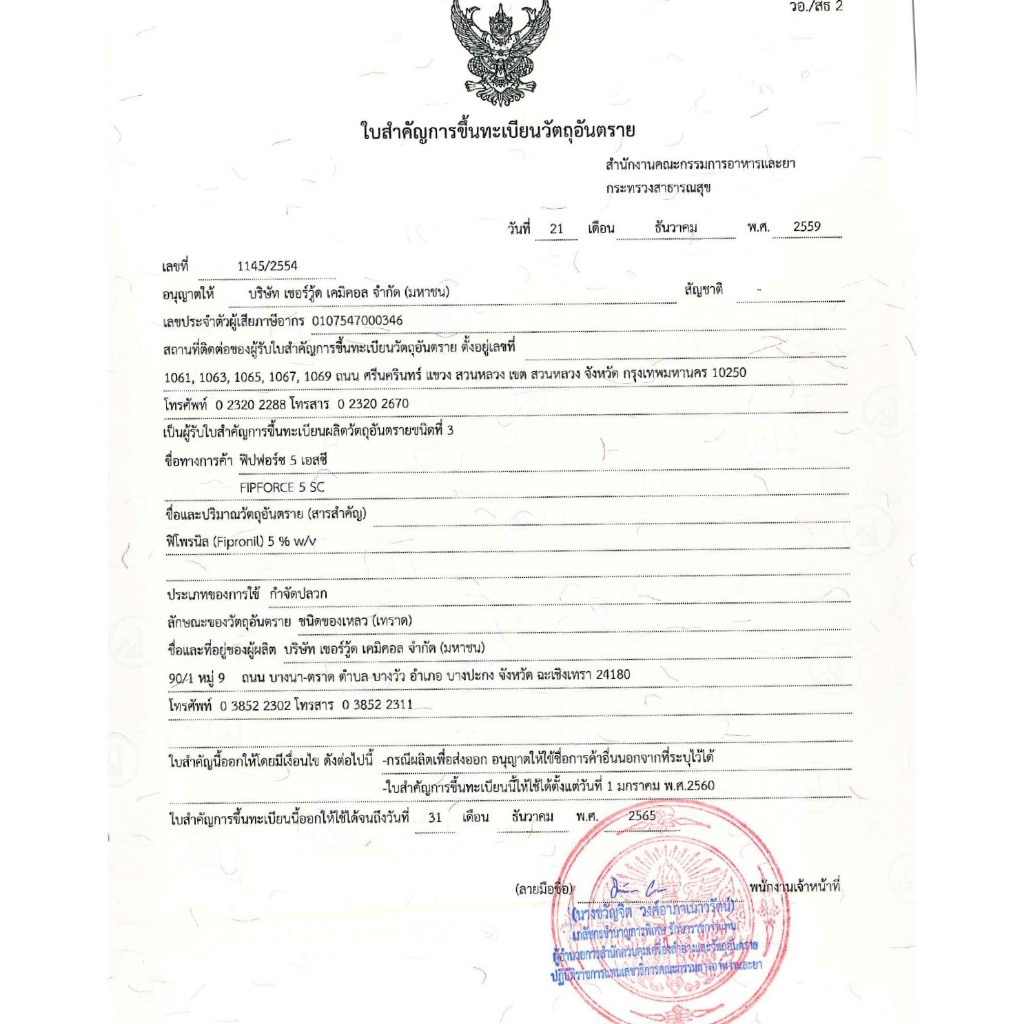 วอ./สธ 2
ใบสำคัญการขึ้นทะเบียนวัตถุอันตราย
สำนักงานคณะกรรมการอาหารและยา
กระทรวงสาธารณสุข
วันที่ 21 เดือน ธันวาคม พ.ศ. 2559
เลขที่ 1145/2554
อนุญาตให้ บริษัท เชอร์วู้ด เคมิคอล จำกัด (มหาชน) สัญชาติ -
เลขประจำตัวผู้เสียภาษีอากร 0107547000346
สถานที่ติดต่อของผู้รับใบสำคัญการขึ้นทะเบียนวัตถุอันตราย ตั้งอยู่เลขที่
1061, 1063, 1065, 1067, 1069 ถนน ศรีนครินทร์ แขวง สวนหลวง เขต สวนหลวง จังหวัด กรุงเทพมหานคร 10250
โทรศัพท์ 0 2320 2288 โทรสาร 0 2320 2670
เป็นผู้รับใบสำคัญการขึ้นทะเบียนผลิตวัตถุอันตรายชนิดที่ 3
ชื่อทางการค้า ฟิปฟอร์ซ 5 เอสซี
FIPFORCE 5 SC
ชื่อและปริมาณวัตถุอันตราย (สารสำคัญ)
ฟิโพรนิล (Fipronil) 5 % w/v
ประเภทของการใช้ กำจัดปลวก
ลักษณะของวัตถุอันตราย ชนิดของเหลว (เทราด)
ชื่อและที่อยู่ของผู้ผลิต บริษัท เชอร์วู้ด เคมิคอล จำกัด (มหาชน)
90/1 หมู่ 9 ถนน บางนา-ตราด ตำบล บางวัว อำเภอ บางปะกง จังหวัด ฉะเชิงเทรา 24180
โทรศัพท์ 0 3852 2302 โทรสาร 0 3852 2311
ใบสำคัญนี้ออกให้โดยมีเงื่อนไข ดังต่อไปนี้ -กรณีผลิตเพื่อส่งออก อนุญาตให้ใช้ชื่อการค้าอื่นนอกจากที่ระบุไว้ได้
-ใบสำคัญการขึ้นทะเบียนนี้ให้ใช้ได้ตั้งแต่วันที่ 1 มกราคม พ.ศ.2560
ใบสำคัญการขึ้นทะเบียนนี้ออกให้ใช้ได้จนถึงวันที่ 31 เดือน ธันวาคม พ.ศ. 2565
(ลายมือชื่อ) พนักงานเจ้าหน้าที่
(นางขวัญจิต วงศ์อาภาเนาวรัตน์)
เภสัชกรชำนาญการพิเศษ รักษาราชการแทน
ผู้อำนวยการสำนักควบคุมเครื่องสำอางและวัตถุอันตราย
ปฏิบัติราชการแทนเลขาธิการคณะกรรมการอาหารและยา